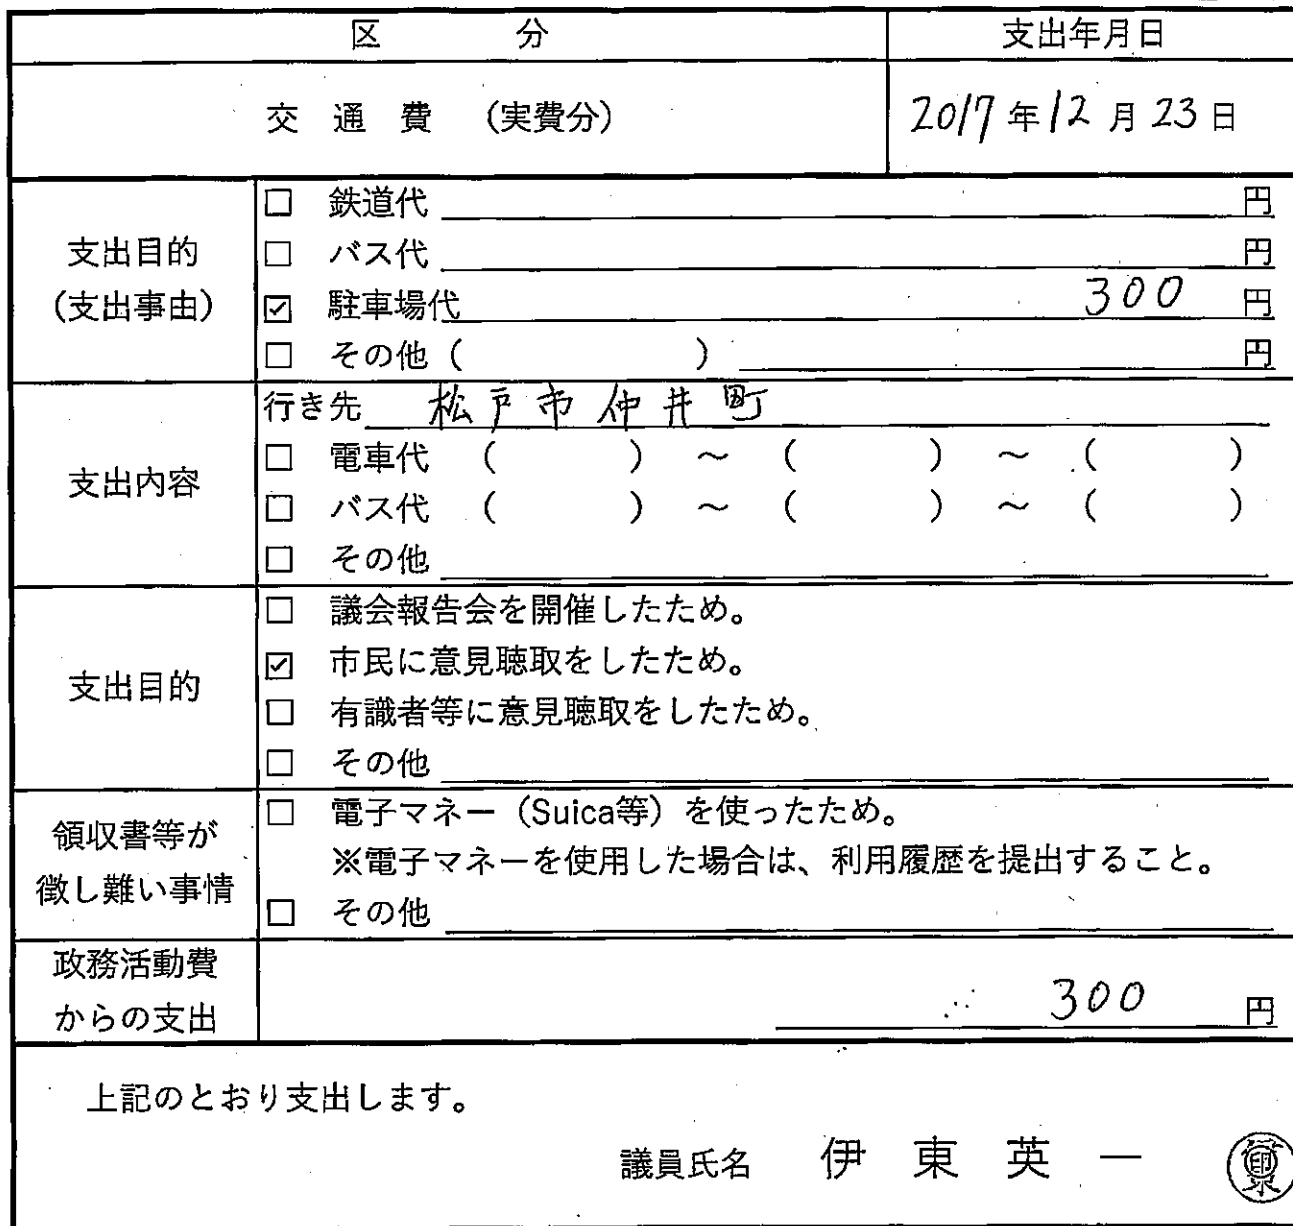 区 分 支出年月日
交通費 (実費分) 2017年12月23日
支出目的
(支出事由)
□ 鉄道代 円
□ バス代 円
☑ 駐車場代 300 円
□ その他 ( ) 円
支出内容
行き先 松戸市仲井町
□ 電車代 ( ) ～ ( ) ～ ( )
□ バス代 ( ) ～ ( ) ～ ( )
□ その他
支出目的
□ 議会報告会を開催したため。
☑ 市民に意見聴取をしたため。
□ 有識者等に意見聴取をしたため。
□ その他
領収書等が
徴し難い事情
□ 電子マネー（Suica等）を使ったため。
※電子マネーを使用した場合は、利用履歴を提出すること。
□ その他
政務活動費
からの支出
300 円
上記のとおり支出します。
議員氏名 伊東英一